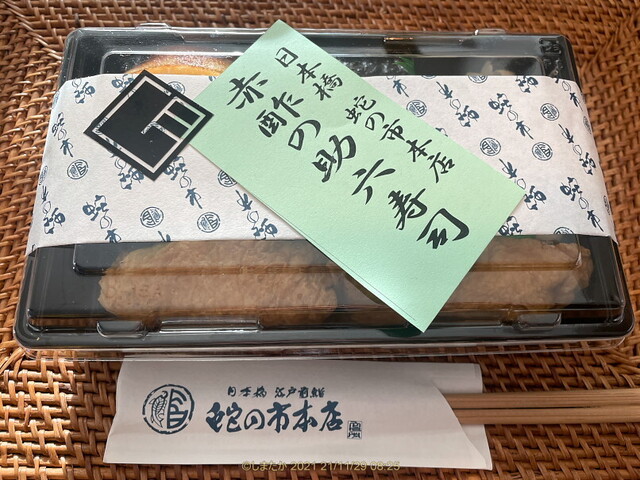 日本橋 蛇の市本店
赤酢の助六寿司
日本橋 江戸前鮨
蛇の市本店
©しまたか 2021 21/11/29 08:25